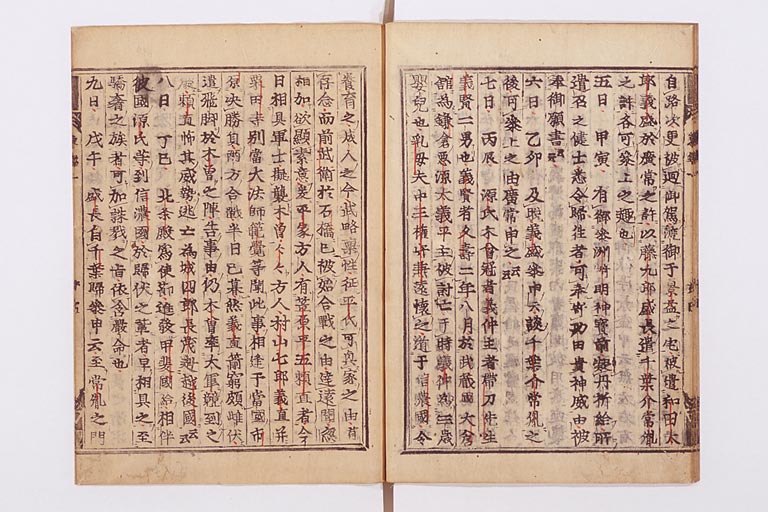 自路次更被廻御駕渡御于景益之宅被遣和田太
郎義盛於廣常之許以藤九郎盛長遣千葉介常胤
之許各可參上之趣也
五日 甲寅 有御參洲崎明神寶前凝丹祈給所
遣召之健士悉令歸往者可奉寄功田賁神威由被
奉御願書云々
六日 乙卯 及晩義盛參申云談千葉介常胤之
後可參上之由廣常申之云々
七日 丙辰 源氏木曽冠者義仲主者帶刀先生
義賢二男也義賢者久壽二年八月於武藏國大倉
舘爲鎌倉惡源太義平主被討亡于時義仲爲三歳
嬰兒也乳母夫中三權守兼遠懷之遁于信濃國令
養育之成人之今武略禀性征平氏可興家之由有
存念而前武衛於石橋已被始合戰之由達遠聞忽
相加欲顯素意爰平家方人有笠原平五頼直者今
日相具軍士擬襲木曽々々方人村山七郎義直并
栗田寺別當大法師範覺等聞此事相逢于當國市
原決勝負兩方合戰半日已暮然義直箭窮頗雌伏
遣飛脚於木曽之陣告事由仍木曽率大軍競到之
處頼直怖其威勢逃亡爲城四郎長茂赴越後國云々
八日 丁巳 北条殿爲使節進發甲斐國給相伴
彼國源氏等到信濃國於歸伏之輩者早相具之至
驕奢之族者可加誅戮之旨依含嚴命也
九日 戊午 盛長自千葉歸參申云至常胤之門